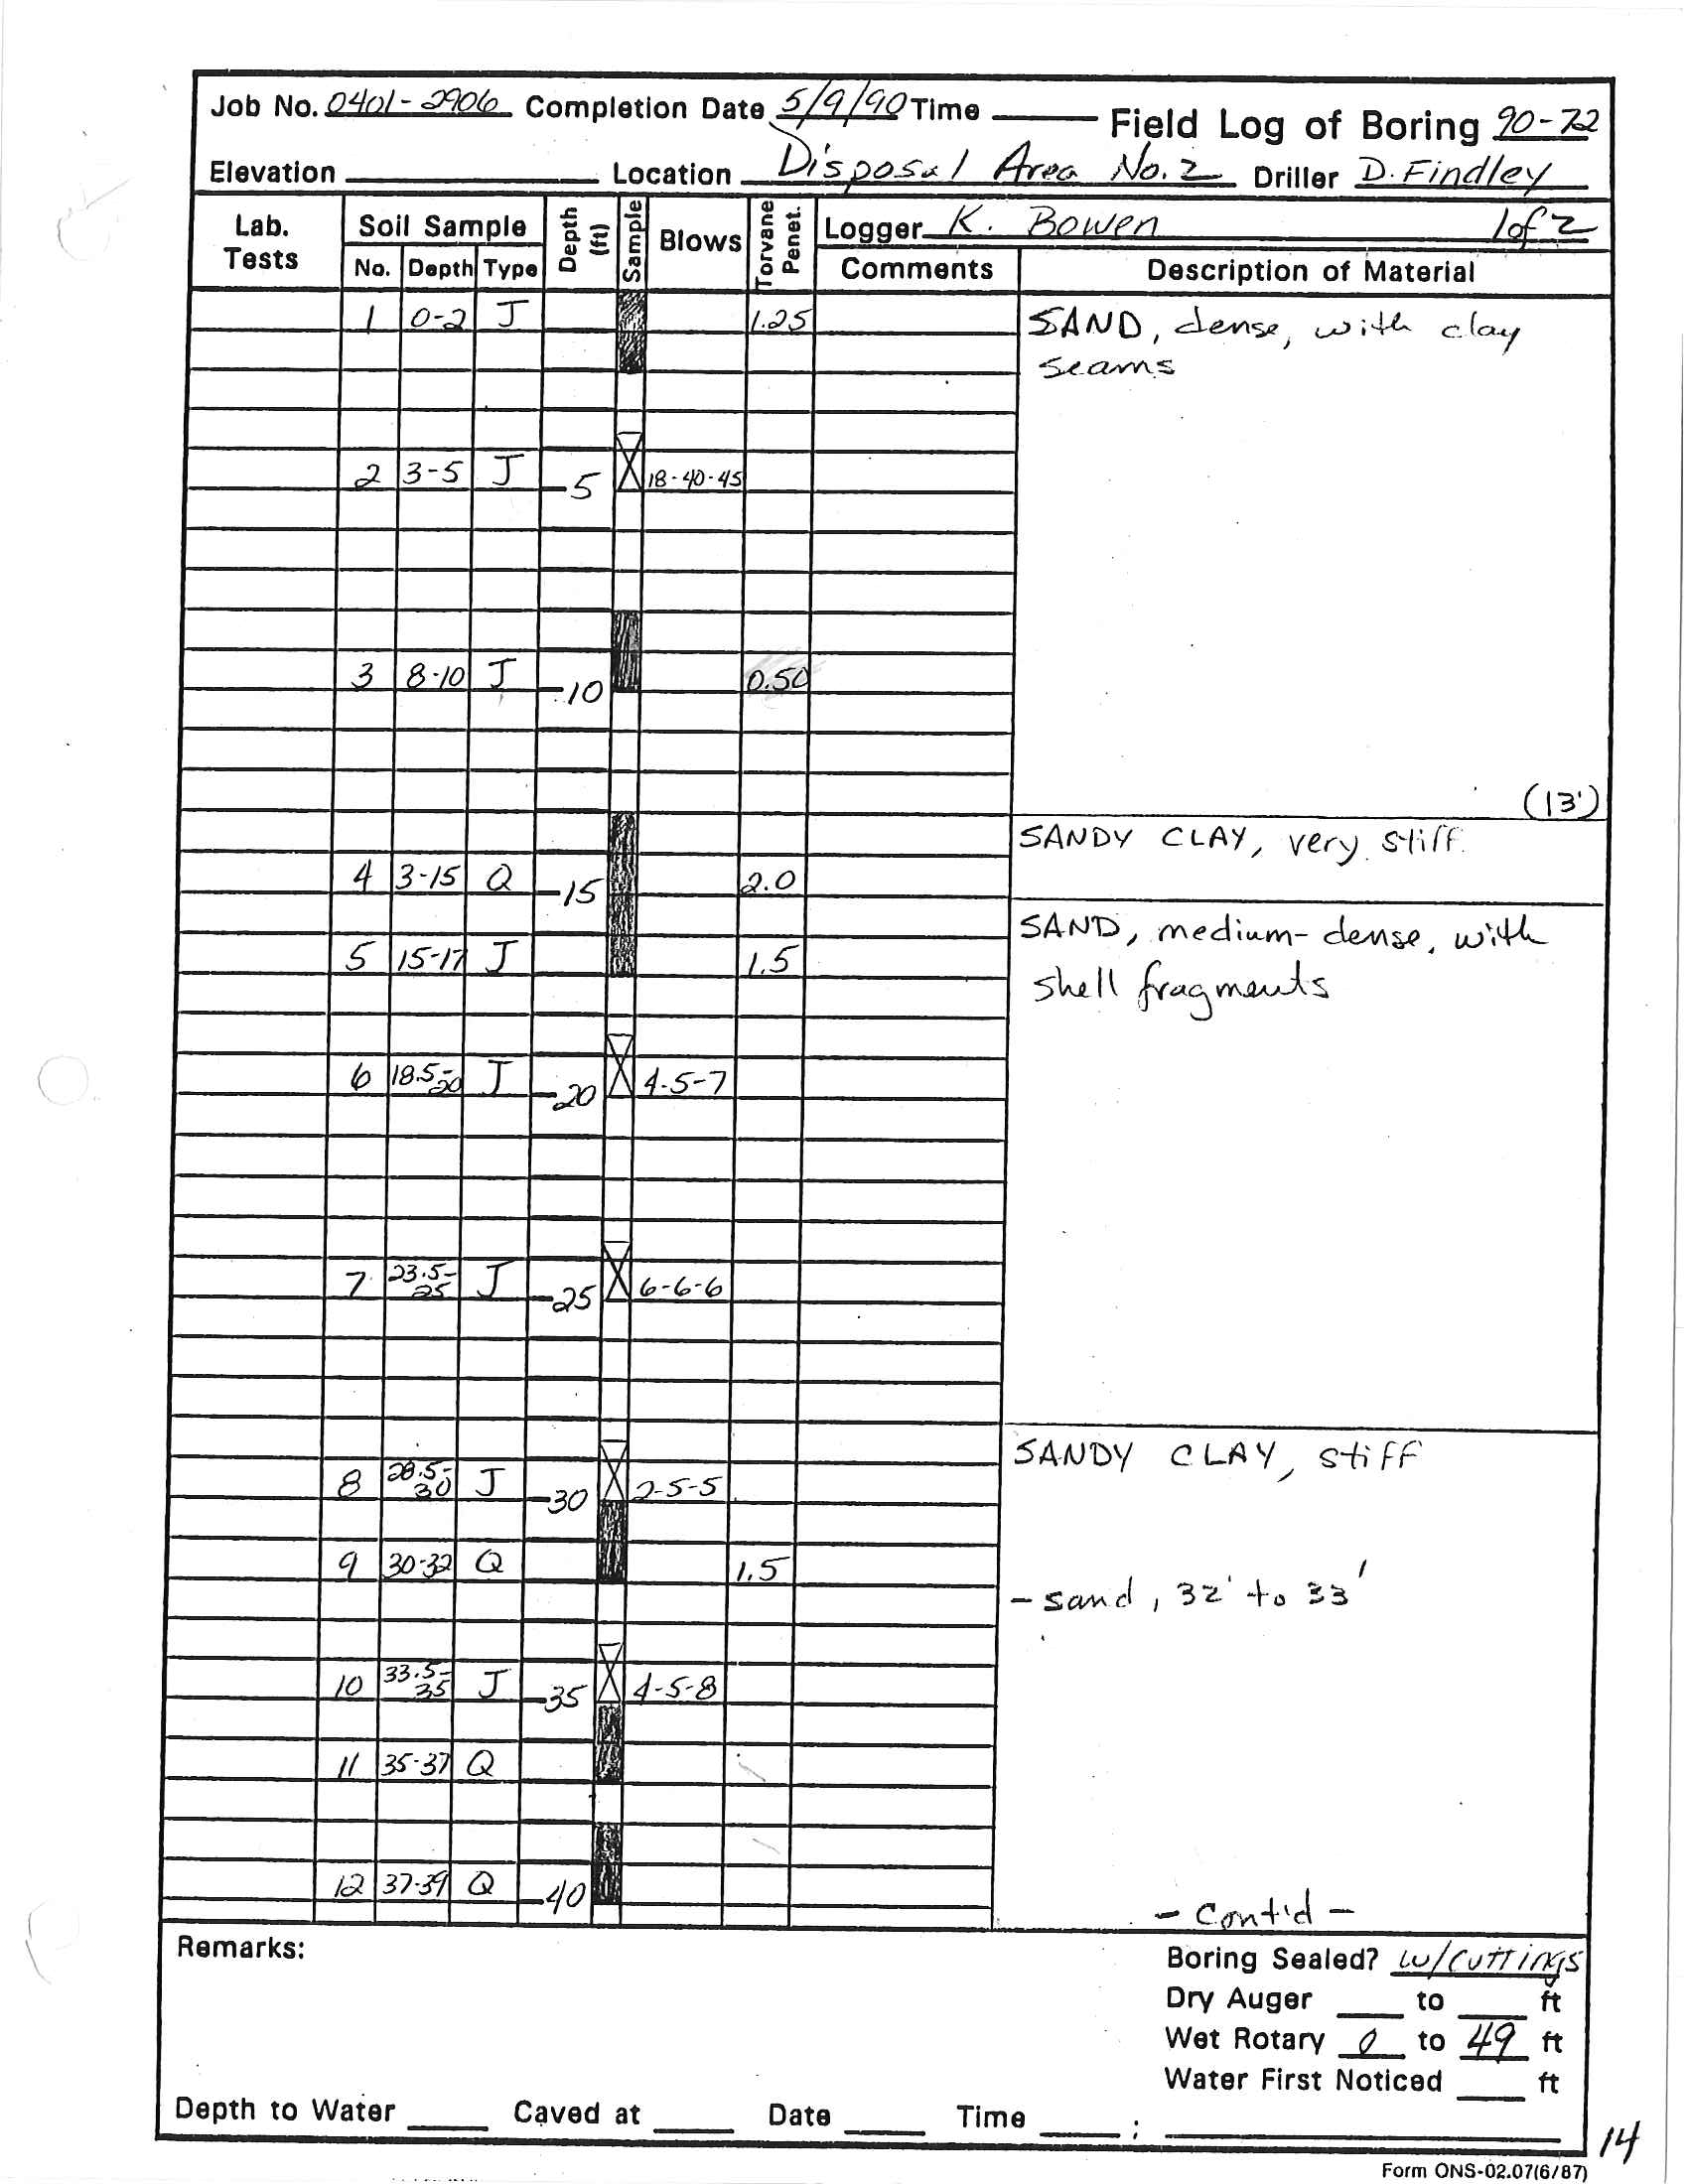 Job No. 0401-2906 Completion Date 5/9/90 Time Field Log of Boring 90-72
Elevation Location Disposal Area No. 2 Driller D. Findley
Lab. Tests Soil Sample No. Depth Type Depth (ft) Sample Blows Torvane Penet. Logger K. Bowen 1 of 2
Comments Description of Material
1 0-2 J 1.25 SAND, dense, with clay
seams
2 3-5 J -5 18-40-45
3 8-10 J -10 0.50
(13')
SANDY CLAY, very stiff
4 3-15 Q -15 2.0
SAND, medium-dense, with
5 15-17 J 1.5
shell fragments
6 18.5-20 J -20 4-5-7
7 23.5-25 J -25 6-6-6
SANDY CLAY, stiff
8 28.5-30 J -30 2-5-5
9 30-32 Q 1.5
- sand, 32' to 33'
10 33.5-35 J -35 4-5-8
11 35-37 Q
12 37-39 Q -40
- Cont'd -
Remarks:
Boring Sealed? w/cuttings
Dry Auger to ft
Wet Rotary 0 to 49 ft
Water First Noticed ft
Depth to Water Caved at Date Time :
14
Form ONS-02.07(6/87)